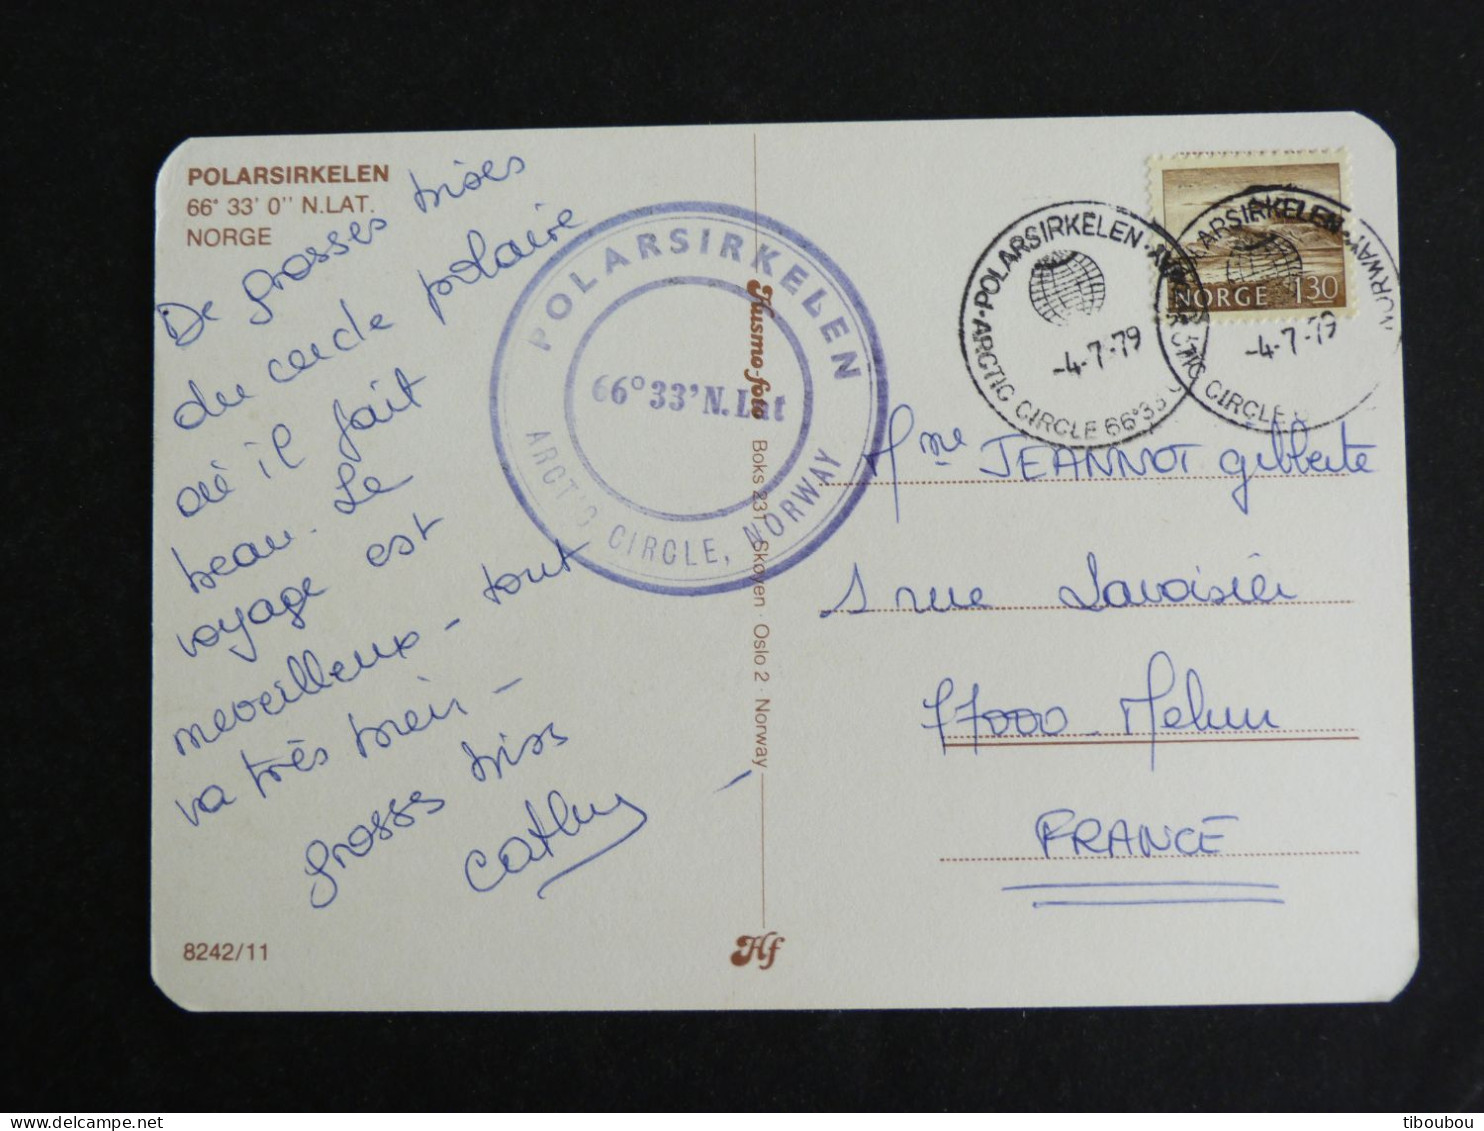 POLARSIRKELEN
66° 33' 0'' N.LAT.
NORGE
De grosses bises
du cercle polaire
où il fait
beau. Le
voyage est
merveilleux - tout
va très bien -
grosses bises
Cathy
8242/11
POLARSIRKELEN
66°33' N.Lat
ARCTIC CIRCLE, NORWAY
Husmo-foto Boks 231 Skøyen · Oslo 2 · Norway
Hf
NORGE 130
POLARSIRKELEN · NORWAY
ARCTIC CIRCLE 66°33'
-4.-7.-79
POLARSIRKELEN · NORWAY
ARCTIC CIRCLE
-4.-7.-79
Mme JEANNOT gilberte
1 rue Lavoisier
77000 - Melun
FRANCE
tiboubou